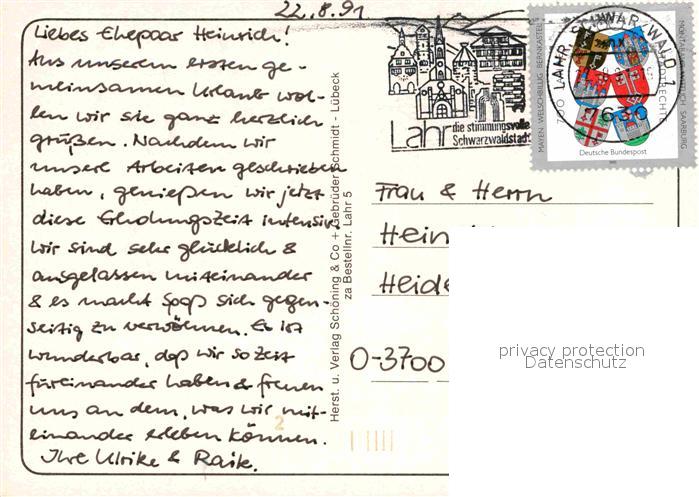 22.8.91
Liebes Ehepaar Heinrich!
Aus unserem ersten ge-
meinsamen Urlaub wol-
len wir sie ganz herzlich
grüßen. Nachdem wir
unsere Arbeiten geschrieben
haben, genießen wir jetzt
diese Erholungszeit intensiv
wir sind sehr glücklich &
ausgelassen miteinander
& es macht Spaß sich gegen-
seitig zu verwöhnen. Es ist
wunderbar, daß wir so Zeit
füreinander haben & freuen
uns an dem, was wir mit-
einander erleben können.
Ihre Ulrike & Raik.
Herst. u. Verlag Schöning & Co + Gebrüder Schmidt - Lübeck
za Bestellnr. Lahr 5
Lahr die stimmungsvolle
Schwarzwaldstadt
LAHR, SCHWARZWALD 1
7630
MAYEN WELSCHBILLIG BERNKASTEL
SAARBURG
700
STADTRECHTE
Deutsche Bundespost
Frau & Herrn
Hein
Heide
O-3700
privacy protection
Datenschutz
2